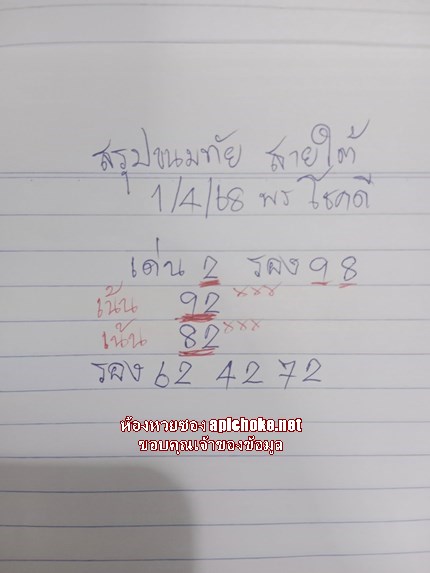 สรุปขนมทัย สายใต้
1/4/68 พร โชคดี
เด่น 2 รอง 9 8
เน้น 92 xxx
เน้น 82 xxx
รอง 62 42 72
ห้องหวยซอง apichoke.net
ขอบคุณเจ้าของข้อมูล